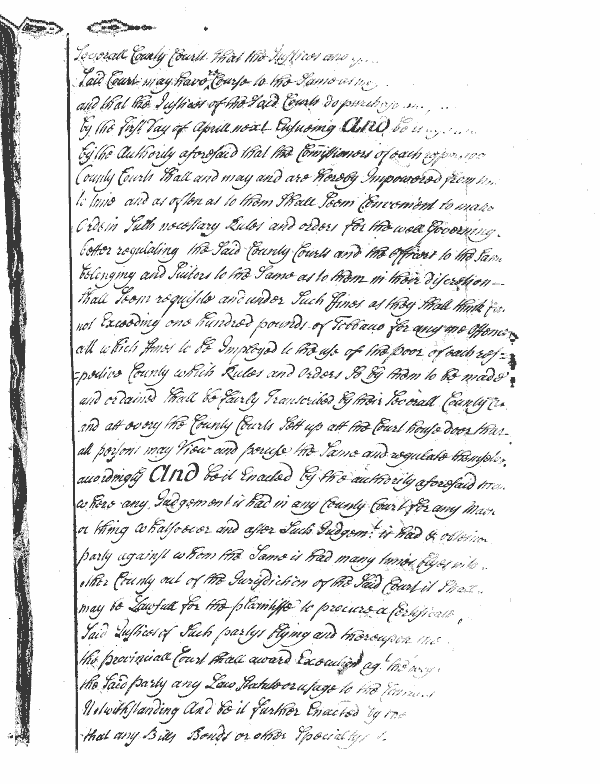 Severall County Courts that the Justices and
Said Court may have Course to the Same
and that the Justices of the said Courts do purchase
by the first day of Aprill next Ensueing And be it
by the Authority aforesaid that the Comissioners of each
County Courts shall and may and are hereby Impowered from
to time and as often as to them Shall Seem Convenient to make
Ordein Such necessary Rules and orders for the well Governing
better regulating the Said County Courts and the officers to the Same
belonging and Suitors to the Same as to them in their discretion
shall Seem requisite and under Such ffines as they shall think
not Exceeding one hundred pounds of Tobbaco for any one Offence
all which ffines to be Imployed to the use of the poor of each res=
=pective County which Rules and Orders So by them to be made
and ordained Shall be fairly Transcribed by their Severall County
and att every the County Courts Sett up att the Court house door that
all persons may View and peruse the Same and regulate themselves
accordingly And be it Enacted by the authority aforesaid
where any Judgement is had in any County Court for any
or thing whatsoever and after Such Judgemt. is had
party against whom the Same is had many times fflyes into
other County out of the Jurisdiction of the Said Court it Shall
may be Lawfull for the plaintiffe to procure a Certificate
Said Justices of Such partys fflying and thereupon
the provinciall Court shall award Execution agt.
the Said party any Law Statute or usage to the
Notwithstanding And be it further Enacted by
that any Bills Bonds or other Specialtys